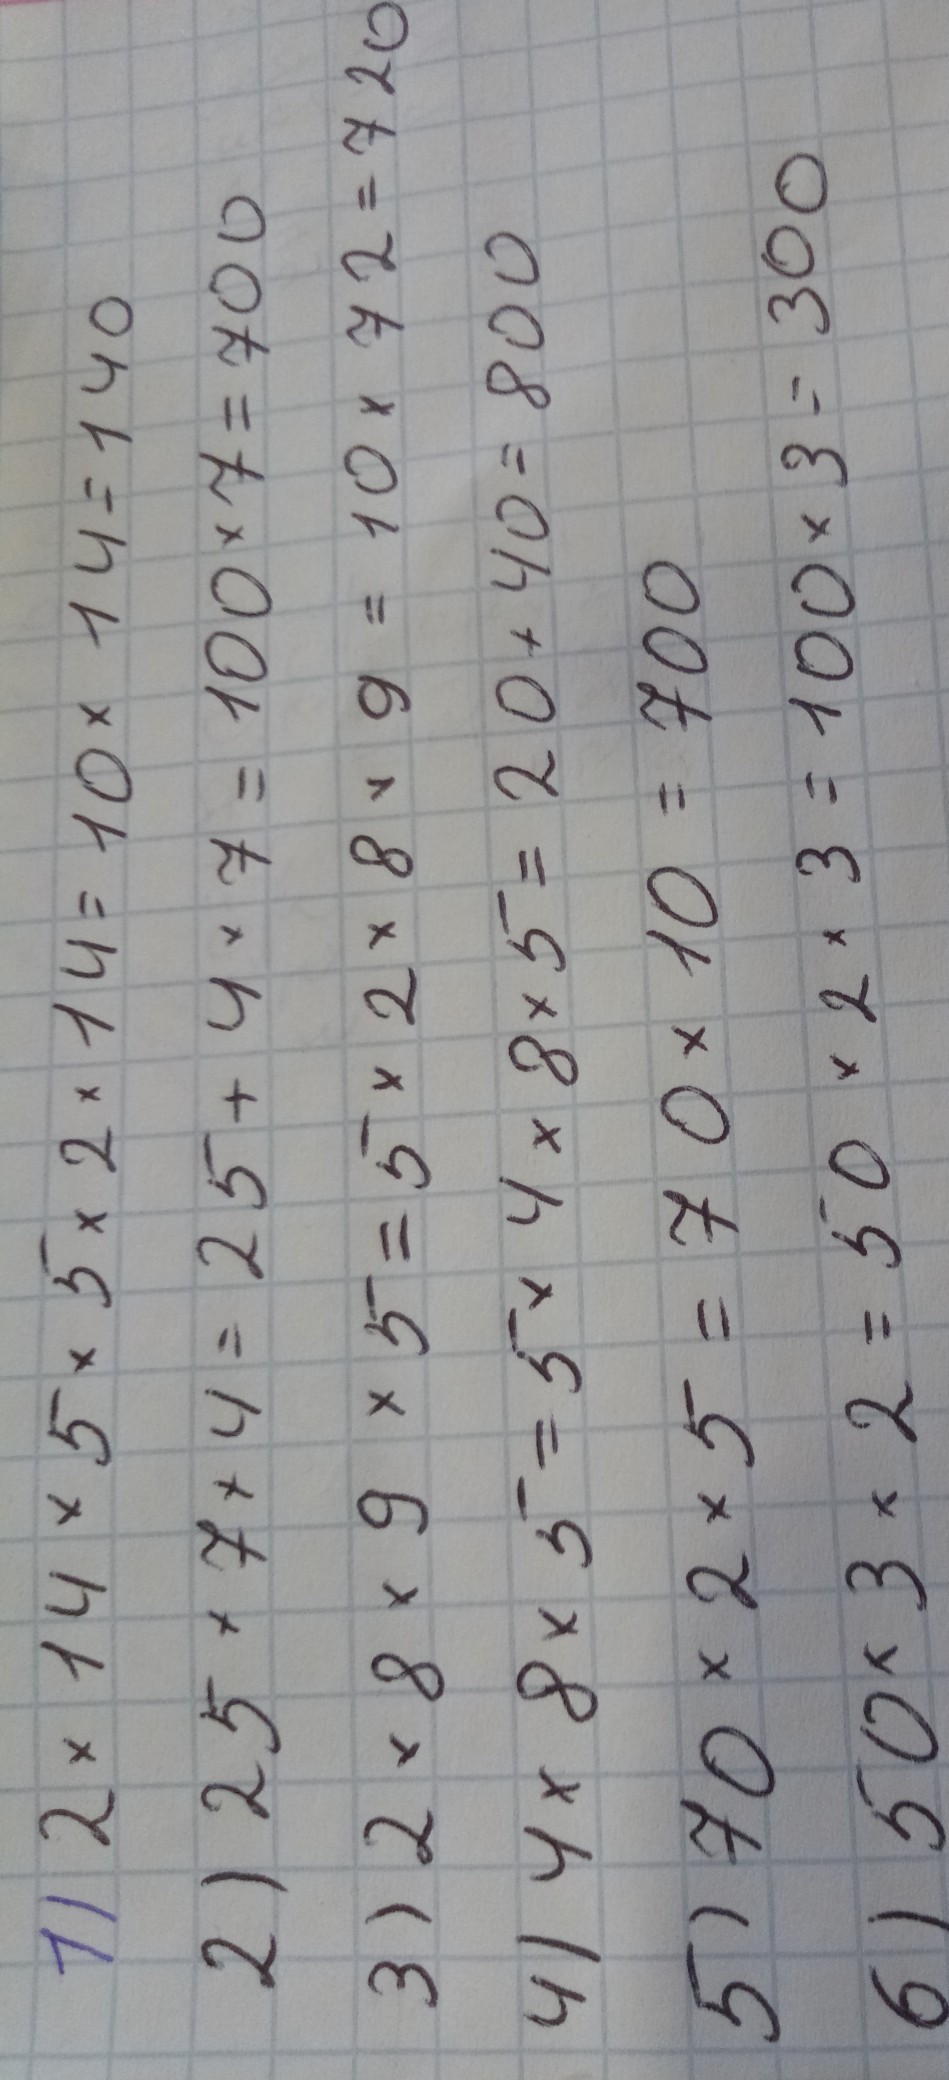 1) 2 × 14 × 5 × 5 × 2 × 14 = 10 × 14 = 140
2) 25 × 7 × 4 = 25 + 4 × 7 = 100 × 7 = 700
3) 2 × 8 × 9 × 5 = 5 × 2 × 8 × 9 = 10 × 72 = 720
4) 4 × 8 × 5 = 5 × 4 × 8 × 5 = 20 + 40 = 800
5) 70 × 2 × 5 = 70 × 10 = 700
6) 50 × 3 × 2 = 50 × 2 × 3 = 100 × 3 = 300